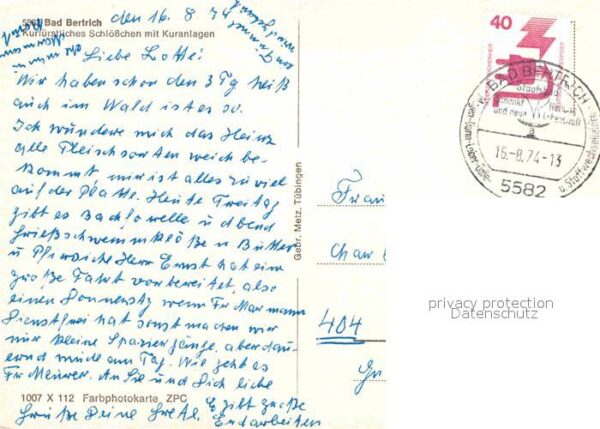 den 16. 8. 74
5582 Bad Bertrich
Kurfürstliches Schlößchen mit Kuranlagen
Liebe Lotte!
Wir haben schon den 3 Tg heiß
auch im Wald ist es so.
Ich wundere mich das Heinz
alle Fleischsorten weich be-
kommt mir ist alles zu viel
auf der Platte. Heute Freitag
gibt es Bachforelle u abend
Grießschwemmklöße u Butter
u Pfirsiche Herr Ernst hat eine
große Fahrt vorbereitet, also
einen Sonnenstg wenn Fr Marmann
Dienstfrei hat sonst machen wir
nur kleine Spaziergänge. aber dau-
ernd müde am Tag. Wie geht es
Fr Meurer. An Sie und Dich liebe
1007 X 112 Farbphotokarte ZPC
Grüße Deine Grete. Es gibt große
Gebr. Metz, Tübingen
40
BAD BERTRICH
16.-8. 74-13
5582
u Stoffwechselleiden
Frau
404
privacy protection
Datenschutz